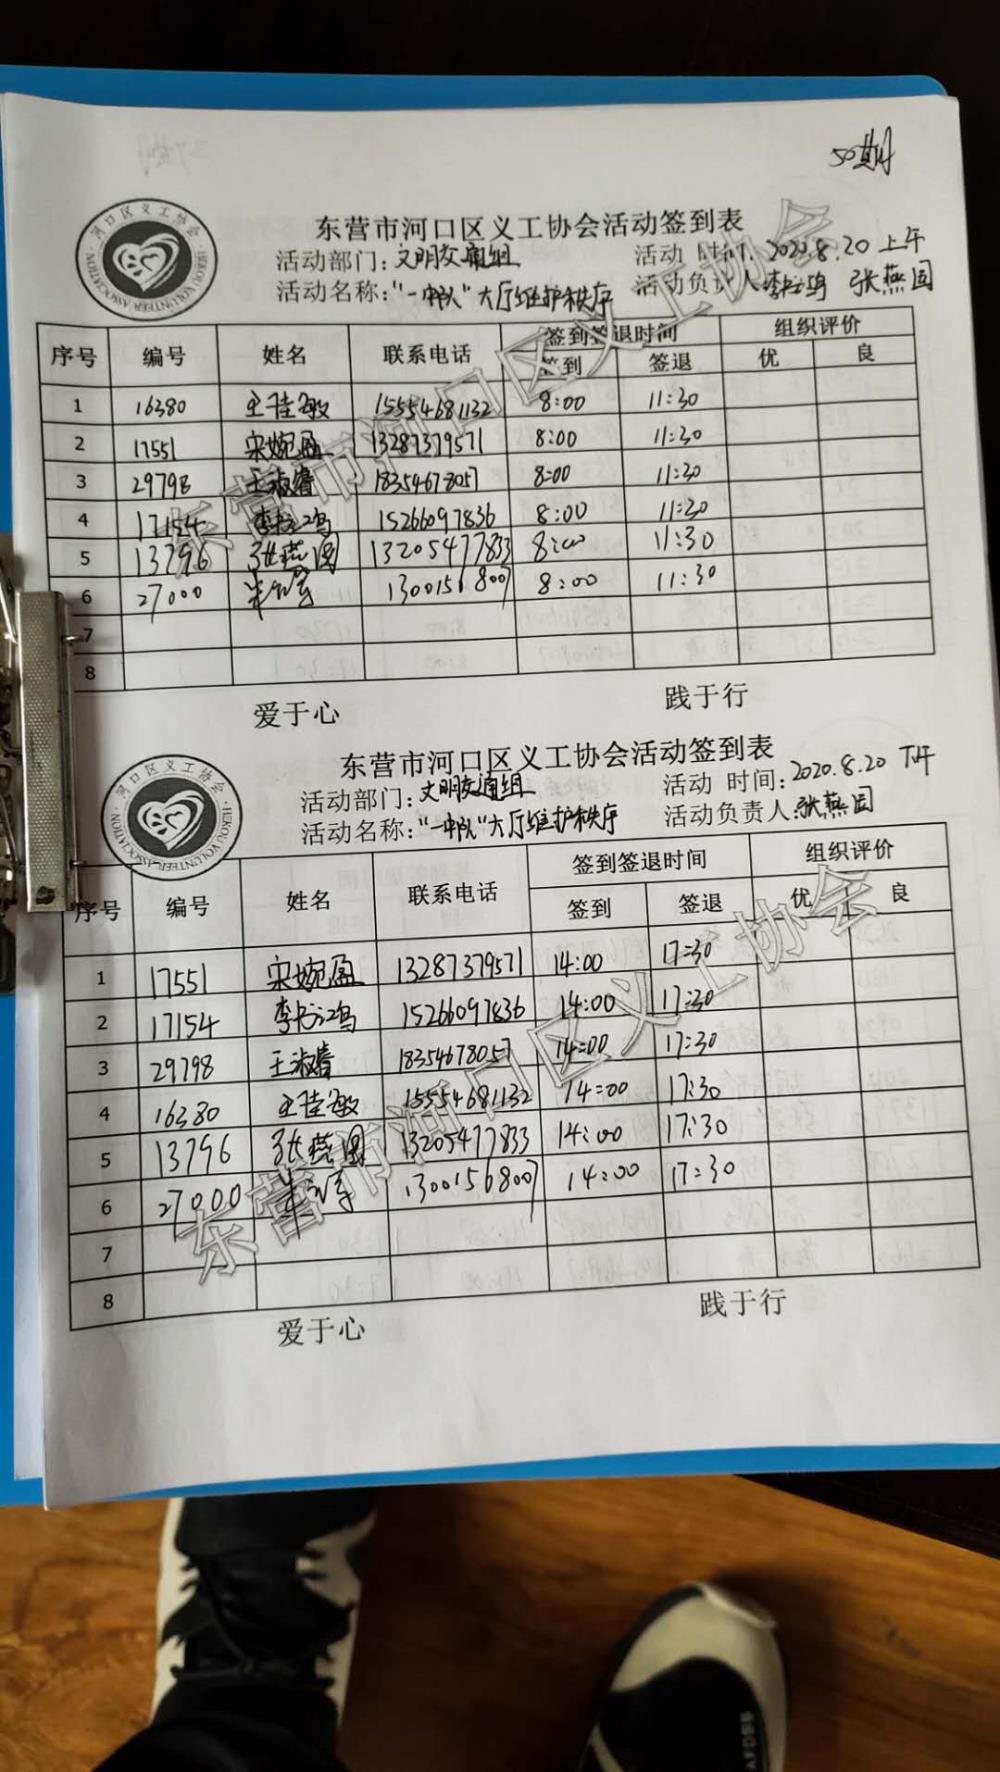 50期
东营市河口区义工协会活动签到表
活动部门：文明交通组 活动 时间：2020.8.20 上午
活动名称："一中队"大厅维护秩序 活动负责人 张燕国
序号 编号 姓名 联系电话 签到签退时间 组织评价
签到 签退 优 良
1 16380 王佳敏 15554681132 8:00 11:30
2 17551 宋婉盈 13287379571 8:00 11:30
3 29798 王淑睿 18354678057 8:00 11:30
4 17154 15266097836 8:00 11:30
5 13796 张燕国 13205477833 8:00 11:30
6 27000 13001568007 8:00 11:30
7
8
爱于心 践于行
东营市河口区义工协会活动签到表
活动部门：文明交通组 活动 时间：2020.8.20 下午
活动名称："一中队"大厅维护秩序 活动负责人：张燕国
序号 编号 姓名 联系电话 签到签退时间 组织评价
签到 签退 优 良
1 17551 宋婉盈 13287379571 14:00 17:30
2 17154 15266097836 14:00 17:30
3 29798 王淑睿 18354678057 14:00 17:30
4 16380 王佳敏 15554681132 14:00 17:30
5 13796 张燕国 13205477833 14:00 17:30
6 27000 13001568007 14:00 17:30
7
8
爱于心 践于行
东营市河口区义工协会
东营市河口区义工协会
河口区义工协会
HEKOU VOLUNTEER ASSOCIATION
河口区义工协会
HEKOU VOLUNTEER ASSOCIATION